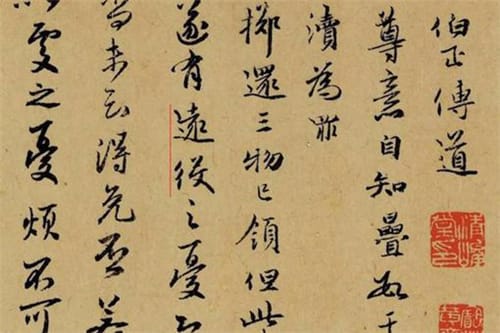 伯正傳道
尊意自知疊數干
瀆為罪
擲還三物已領但此
遂有遠役之憂
未云得免否若
之憂煩不可